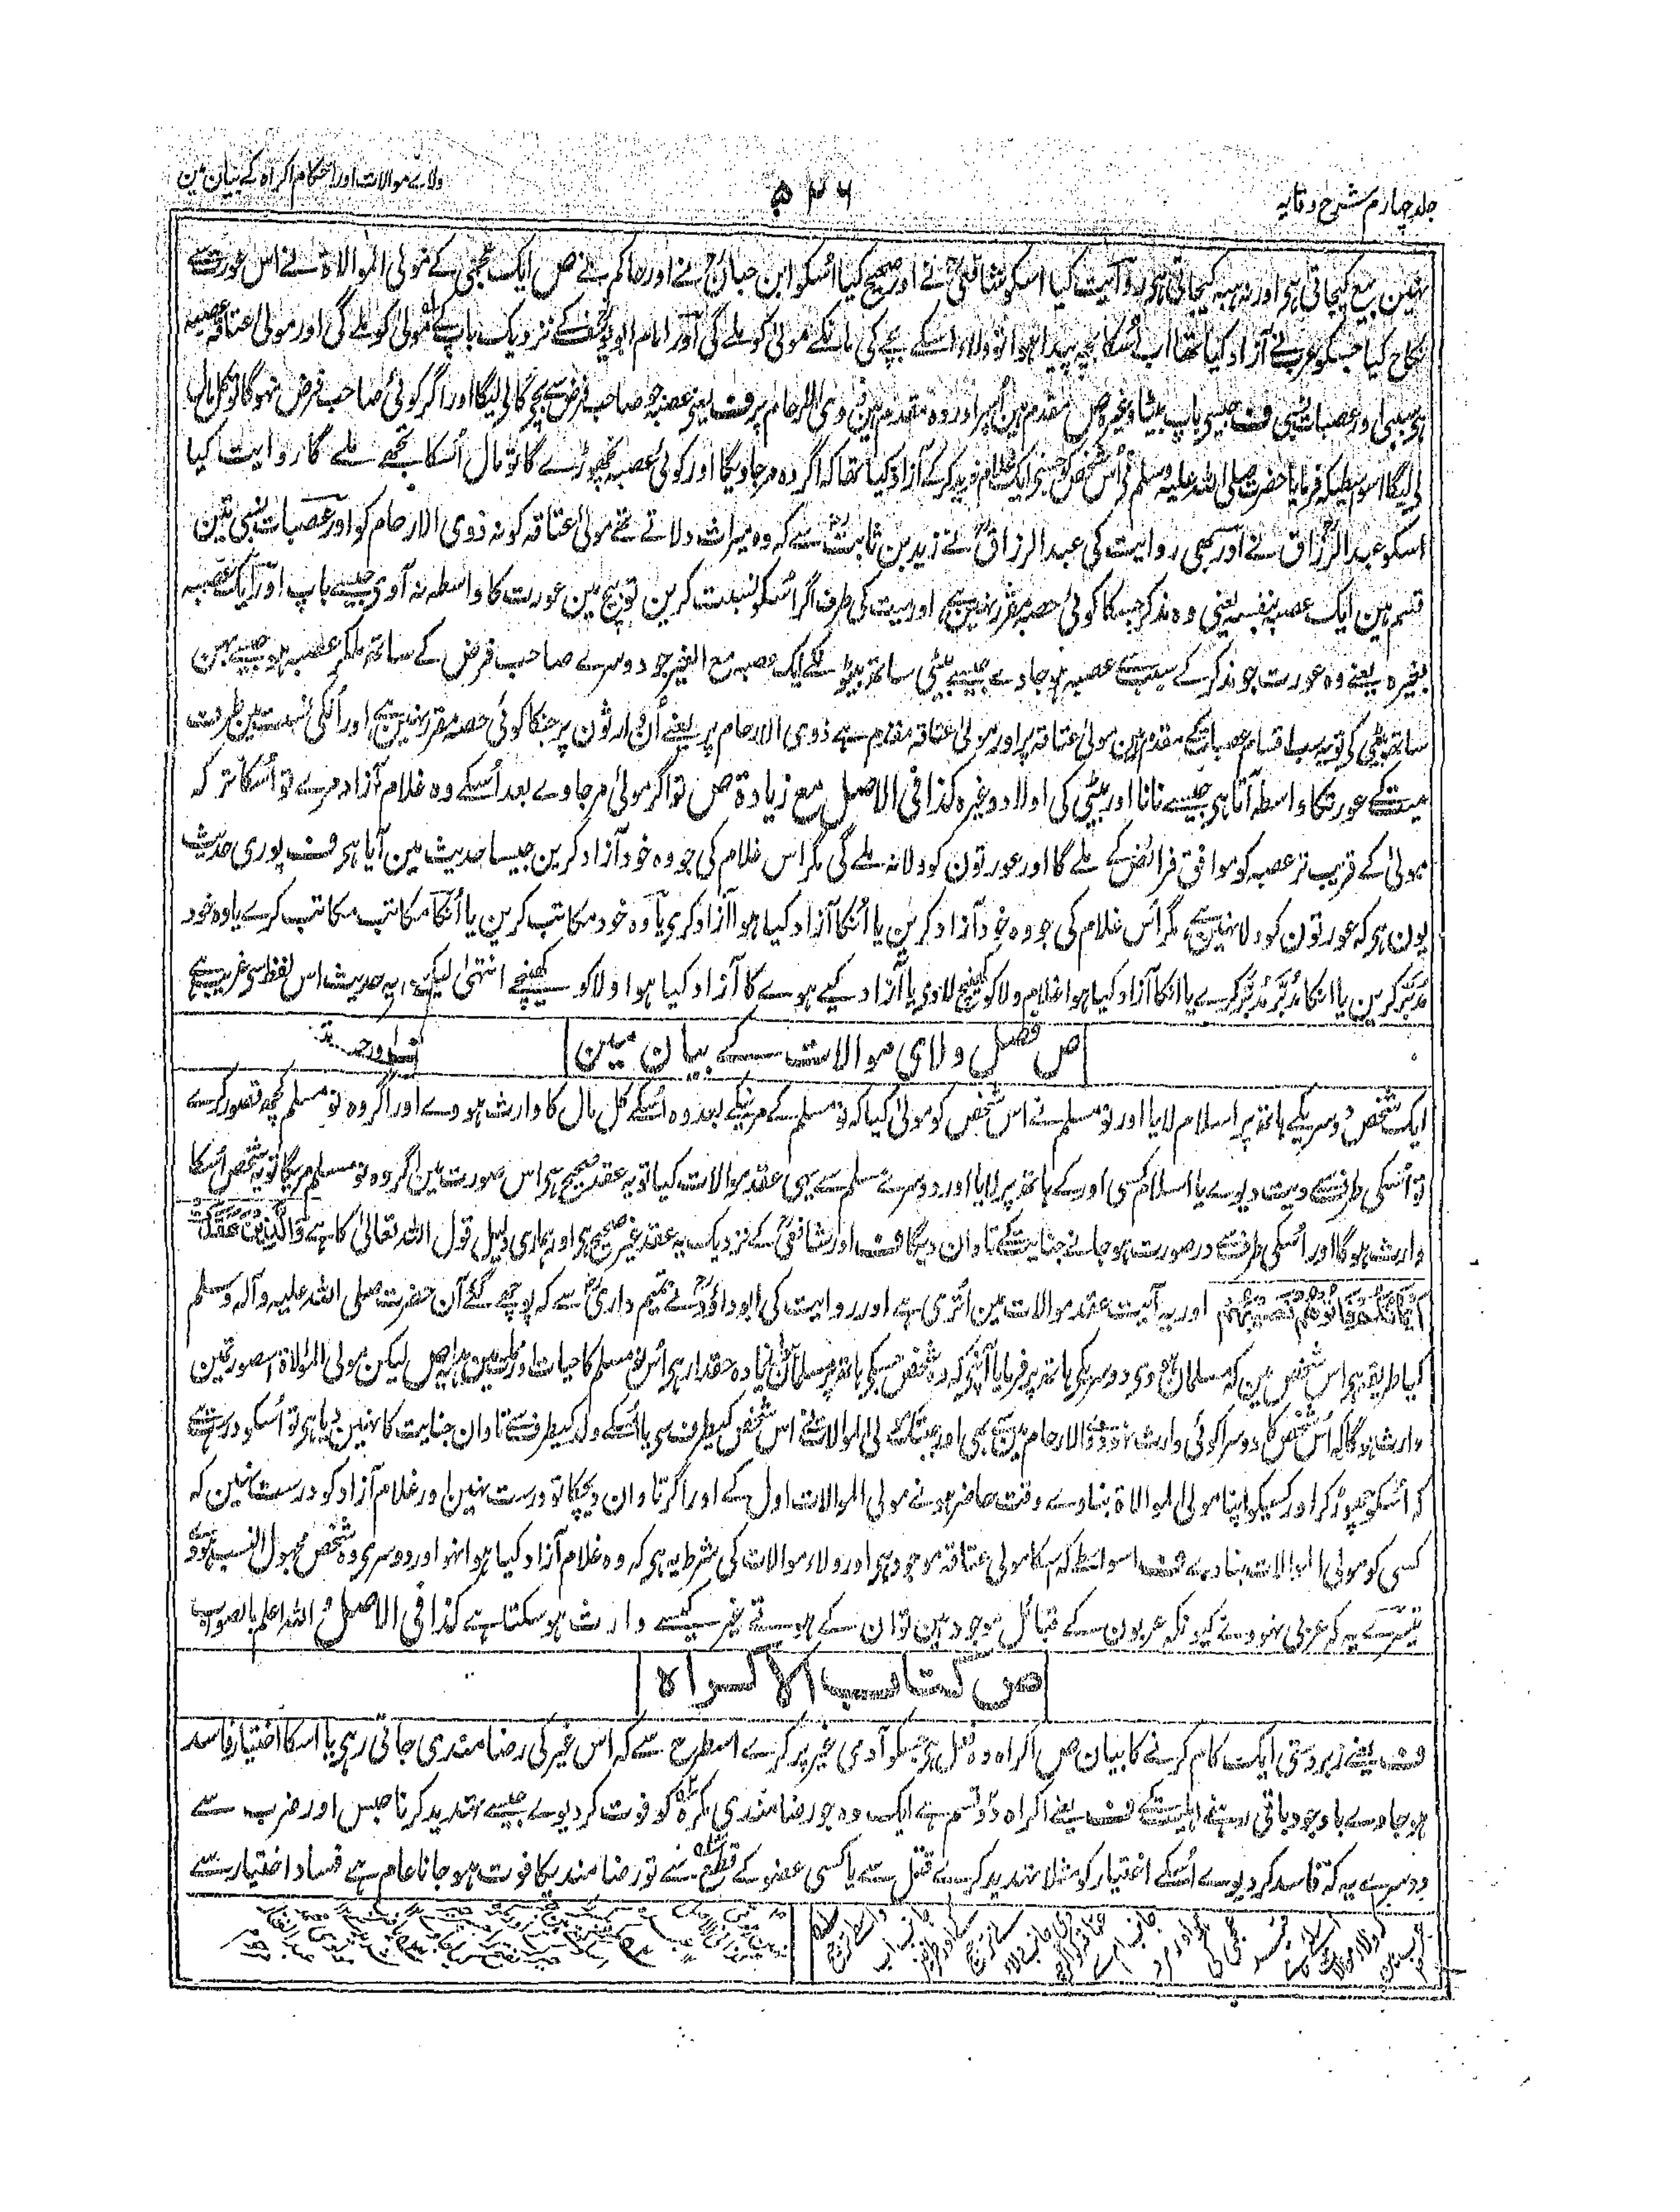 جلد چہارم شرح وقایہ
۵۴۶
ولاے موالات اور احکام اکراہ کے بیان مین
نہین بیع کیجاتی ہی اور نہ ہبہ کیجاتی ہی روایت کیا اسکو شافعیؒ نے اور صحیح کیا اسکو ابن حبانؒ نے اور حاکم نے ص ایک عجمی کے مولی الموالاۃ نے اس عورت سے
نکاح کیا جسکو عرب نے آزاد کیا تھا اب اسکا بچہ پیدا ہوا تو ولاء اسکے بچے کی مانکے مولی کو ملے گی اور امام ابو یوسفؒ کے نزدیک باپ کے مولیٰ کو ملے گی اور مولیٰ عتاقہ عصبہ
ہی سببی اور عصبات نسبی ف جیسی باپ بیٹا وغیرہ ص مقدم ہین اسپر اور وہ مقدم ہین ذوی الارحام پر ف یعنی عصبہ جو صاحب فرض سے بچے گا لی لیگا اور اگر کوئی صاحب فرض نہوگا تو کل مال
لی لیگا اسواسطیکہ فرمایا حضرت صلی اللہ علیہ وسلم نی اس شخص کو جسنی ایک غلام خرید کرکے آزاد کیا تھا کہ اگر وہ مرجاویگا اور کوئی عصبہ نچھوڑے گا تو مال اسکا تجھے ملے گا روایت کیا
اسکو عبد الرزاق نے اور بھی روایت کی عبد الرزاقؒ نے زید بن ثابتؓ سے کہ وہ میراث دلاتے تھے مولیٰ عتاقہ کو نہ ذوی الارحام کو اور عصبات نسبی تین
قسم ہین ایک عصبہ بنفسہ یعنی وہ مذکر جسکا کوئی حصہ مقرر نہین ہی اور میت کی طرف اگر اسکو نسبت کرین تو بیچ مین عورت کا واسطہ نہ آوی جیسے باپ اور ایک عصبہ
بغیرہ یعنے وہ عورت جو مذکر کے سبب سے عصبہ ہو جاوے جیسے بیٹی ساتھ بیٹونکے ایک عصبہ مع الغیر جو دوسرے صاحب فرض کے ساتھ ملکر عصبہ ہو جیسے بہن
ساتھ بیٹی کی تو یہ سب اقسام عصبات کے مقدم ہین مولیٰ عتاقہ پر اور مولیٰ عتاقہ مقدم ہے ذوی الارحام پر یعنے ان وارثون پر جنکا کوئی حصہ مقرر نہین ہی اور انکی نسبت مین طرف
میت کے عورتکا واسطہ آتا ہی جیسے نانا اور بیٹی کی اولاد وغیرہ کذا فی الاصل مع زیادۃ ص تو اگر مولیٰ مرجاوے بعد اسکے وہ غلام آزاد مرے تو اسکا ترکہ
مولیٰ کے قریب تر عصبہ کو موافق فرائض کے ملے گا اور عورتون کو ولا نہ ملے گی مگر اس غلام کی جو وہ خود آزاد کرین جیسا حدیث مین آیا ہی ف پوری حدیث
یون ہی کہ عورتون کو ولا نہین ہی مگر اس غلام کی جو وہ خود آزاد کرین یا انکا آزاد کیا ہوا آزاد کری یا وہ خود مکاتب کرین یا انکا مکاتب مکاتب کرے یا وہ خود
مدبّر کرین یا انکا مدبّر مدبّر کرے یا انکا آزاد کیا ہوا غلام ولا کو کھینچ لاوی یا آزاد کیے ہوے کا آزاد کیا ہوا ولا کو کھینچے انتہیٰ لیکن یہ حدیث اس لفظ سی غریب ہی
ص فصل ولای موالات کے بیان مین
ایک شخص دوسریکے ہاتھ پر اسلام لایا اور نو مسلم نے اس شخص کو مولیٰ کیا کہ نو مسلم کے مرنیکے بعد وہ اسکے کل مال کا وارث ہووے اور اگر وہ نو مسلم کچھ قصور کرے
تو اسکی طرف سے دیت دیوے یا اسلام کسی اور کے ہاتھ پر لایا اور دوسرے مسلم سے یہی عقد موالات کیا تو یہ عقد صحیح ہی اس صورت مین اگر وہ نو مسلم مریگا تو یہ شخص اسکا
وارث ہوگا اور اسکی طرف سے درصورت ہو جانے جنایت کے تاوان دیگا ف اور شافعیؒ کے نزدیک یہ عقد غیر صحیح ہی اور ہماری دلیل قول اللہ تعالیٰ کا ہے وَالَّذِینَ عَقَدَتْ
اَیْمَانُکُمْ فَآتُوهُمْ نَصِیبَهُمْ اور یہ آیت عقد موالات مین اتری ہے اور روایت کی ابو داؤدؒ نے تمیم داریؓ سے کہ پوچھے گئے آن حضرت صلی اللہ علیہ وآلہ وسلم
کیا طریقہ ہی اس شخص مین کہ مسلمان ہووی دوسریکی ہاتھ پر فرمایا آپنے کہ وہ شخص جسکی ہاتھ پر مسلمان ہوا زیادہ حقدار ہی اس نو مسلم کا حیات اور ممات مین ص لیکن مولی الموالاۃ اسصورتمین
وارث ہوگا کہ اس شخص کا دوسرا کوئی وارث نہو ذوی الارحام مین سے بھی اور جبتک مولی الموالات نے اس شخص کیطرف سی یا اسکے ولد کیطرف سے تاوان جنایت کا نہین دیا ہی تو اسکو درست ہے
کہ اسکو چھوڑ کر اور کسیکو اپنا مولی الموالاۃ بناوے وقت حاضر ہونے مولی الموالات اول کے اور اگر تاوان دیچکا تو درست نہین اور غلام آزاد کو درست نہین کہ
کسی کو مولی الموالات بناوے ف اسواسطے کہ اسکا مولی عتاقہ موجود ہی اور ولاء موالات کی شرط یہ ہی کہ وہ غلام آزاد کیا ہوا نہو اور دوسری وہ شخص مجہول النسب ہووے
تیسرے یہ کہ عربی نہووے کیونکہ عربون کے قبائل موجود ہین تو ان کے ہوتے غیر کیسے وارث ہوسکتا ہے کذا فی الاصل واللہ اعلم بالصواب
ص کتاب الاکراہ
ف یعنے زبردستی ایک کام کرنے کا بیان ص اکراہ وہ فعل ہی جسکو آدمی غیر پر کرے اسطرح سے کہ اس غیر کی رضامندی جاتی رہی یا اسکا اختیار فاسد
ہوجاوے باوجود باقی رہنے اہلیت کے ف یعنے اکراہ دو قسم ہے ایک وہ جو رضامندی مکرہ کو فوت کردیوے جیسے تہدید کرنا حبس اور ضرب سے
دوسرے یہ کہ فاسد کردیوے اسکے اختیار کو مثلا تہدید کرے قتل سے یا کسی عضو کے قطع سے تو رضامندیکا فوت ہوجانا عام ہے فساد اختیار سے